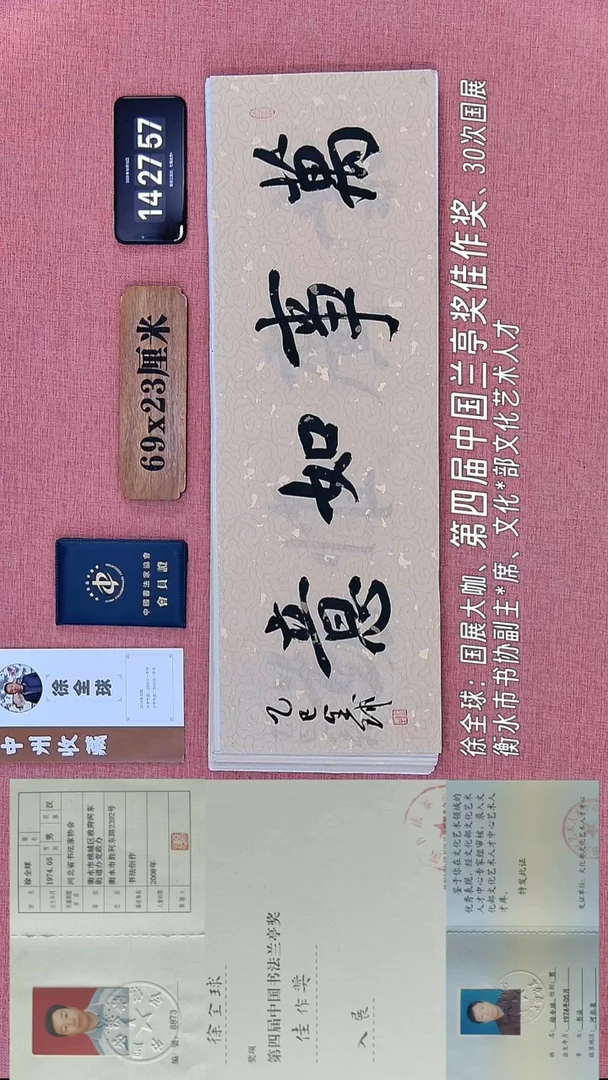 14 27 57
69x23厘米
中國書法家協會
會員證
徐全球
中州收藏
萬事如意
乙巳全球
徐全球：国展大咖、第四届中国兰亭奖佳作奖、30次国展
衡水市书协副主*席、文化*部文化艺术人才
徐全球
1974.05
男
汉
河北省书法家协会
衡水市桃城区政府河东街道办党政办
衡水市胜利东路2202号
书法创作
2008年
8873
徐全球
奖项
第四届中国书法兰亭奖
佳作奖
入展
鉴于你在文化艺术领域的
优秀表现，经文化部文化艺术
人才中心专家组审核，录入文
化部文化艺术人才中心艺术人
才库。
特发此证
发证单位：文化部文化艺术人才中心
姓名：徐全球
性别：男
出生年月：1974年05月